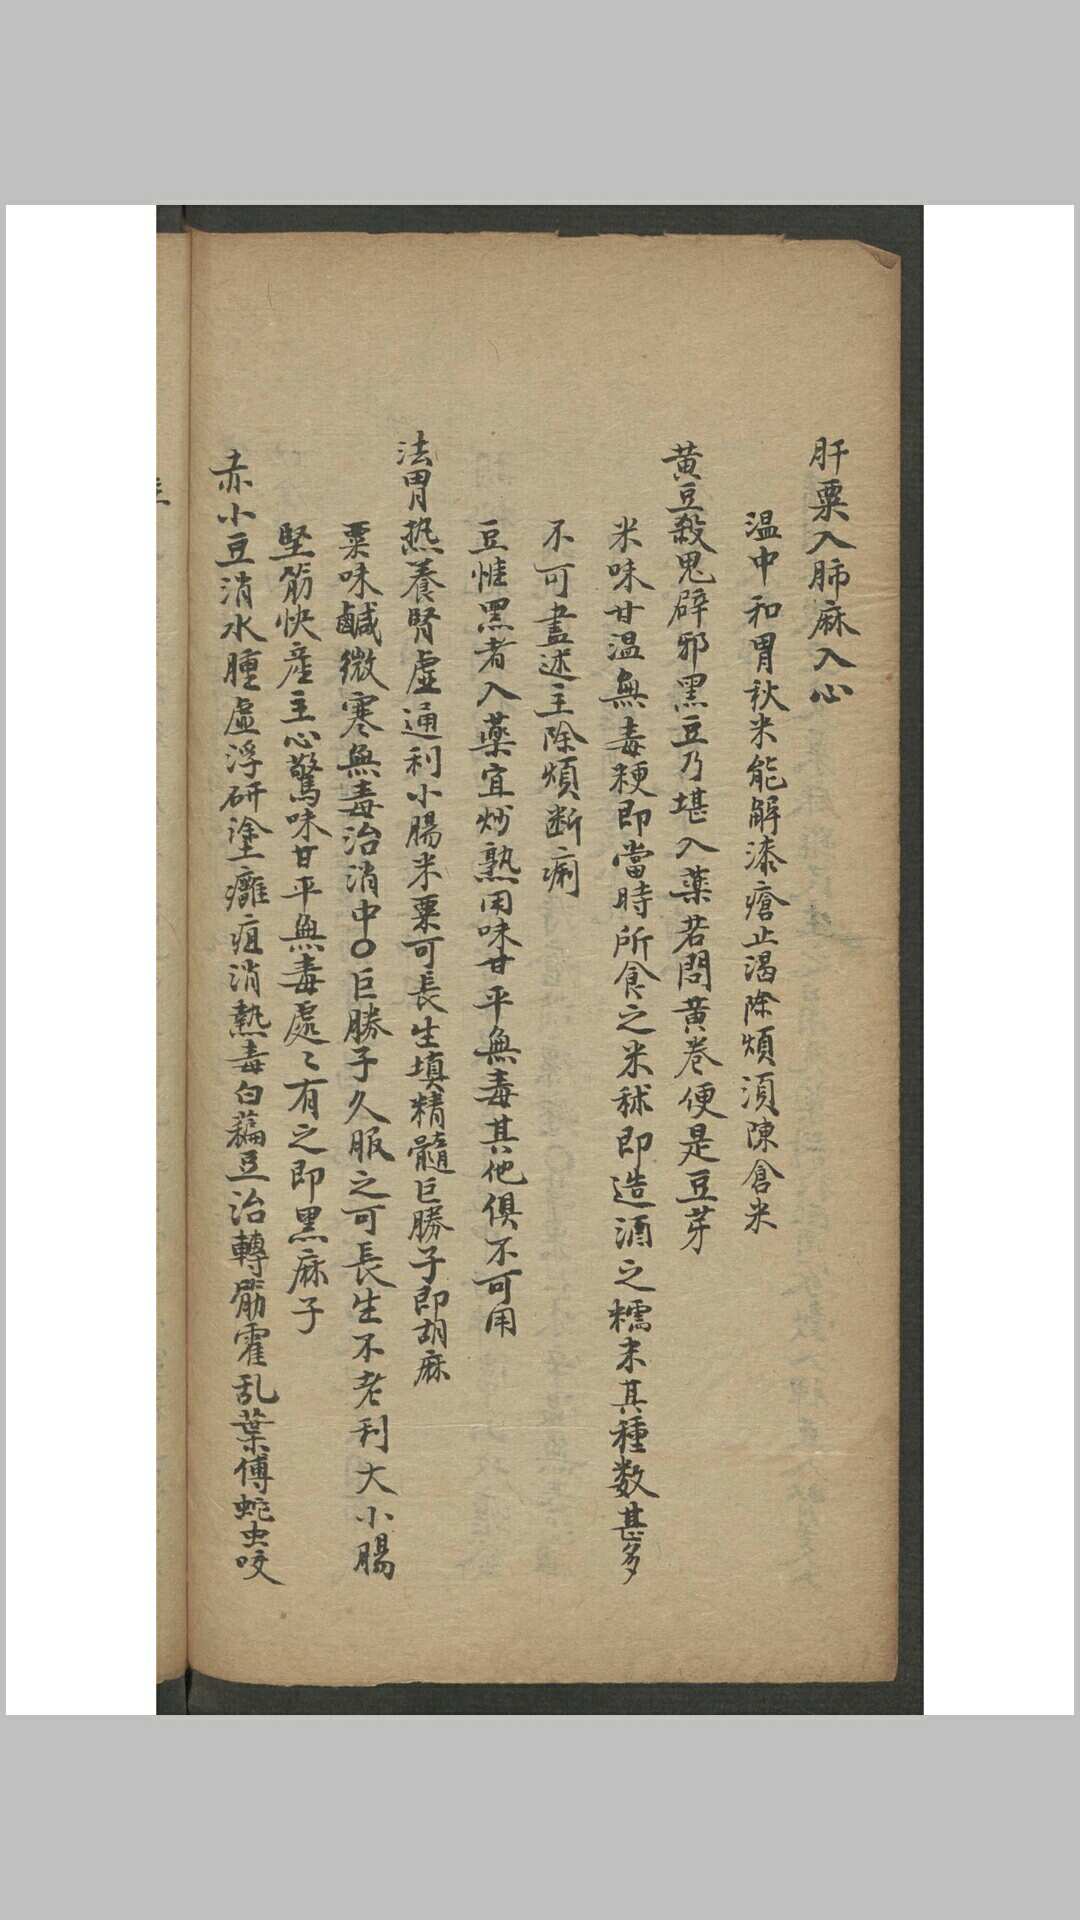 肝粟入肺麻入心
温中和胃秋米能解漆瘡止渴除煩須陳倉米
黄豆殺鬼辟邪黑豆乃堪入藥若問黄卷便是豆芽
米味甘温無毒粳即當時所食之米秫即造酒之糯米其種数甚多
不可盡述主除煩断痢
豆惟黑者入藥宜炒熟用味甘平無毒其他俱不可用
法胃热養腎虚通利小腸米粟可長生填精髓巨勝子即胡麻
粟味鹹微寒無毒治消中〇巨勝子久服之可長生不老利大小腸
堅筋快産主心驚味甘平無毒處〻有之即黑麻子
赤小豆消水腫虚浮研塗癰疽消熱毒白藊豆治轉筋霍乱葉傅蛇虫咬